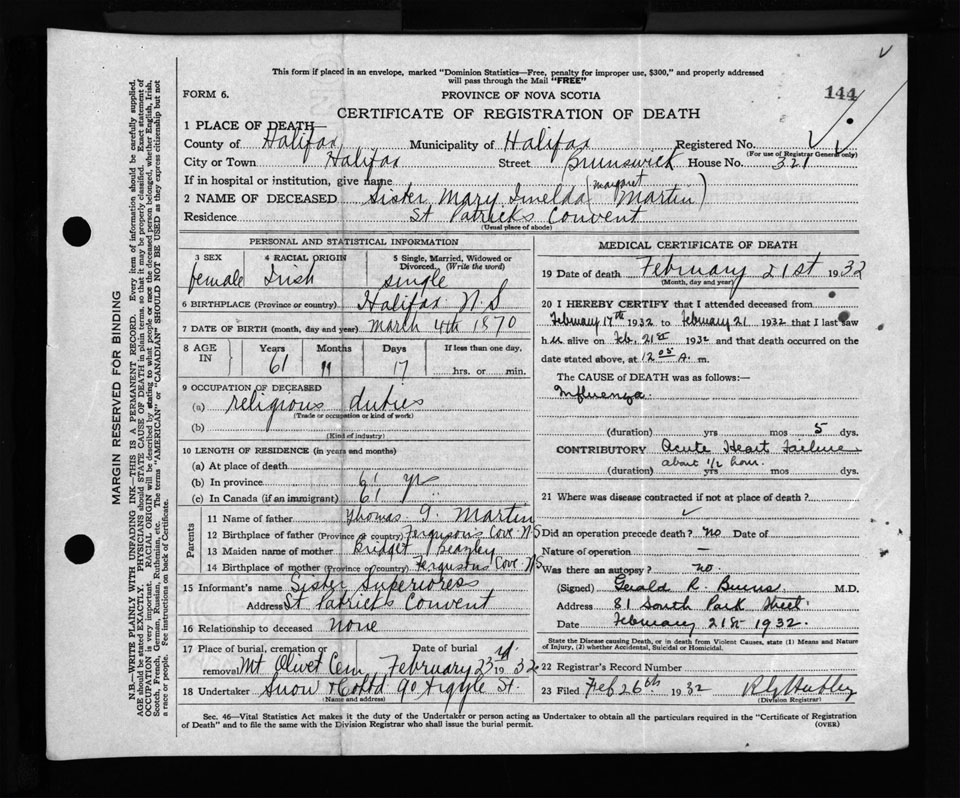 This form if placed in an envelope, marked "Dominion Statistics—Free, penalty for improper use, $300," and properly addressed
will pass through the Mail "FREE"
FORM 6. PROVINCE OF NOVA SCOTIA 144
CERTIFICATE OF REGISTRATION OF DEATH
1 PLACE OF DEATH—
County of Halifax Municipality of Halifax Registered No.
(For use of Registrar General only)
City or Town Halifax Street Brunswick House No. 321
If in hospital or institution, give name
2 NAME OF DECEASED Sister Mary Imelda (Margaret Martin)
Residence St Patricks Convent
(Usual place of abode)
PERSONAL AND STATISTICAL INFORMATION
3 SEX 4 RACIAL ORIGIN 5 Single, Married, Widowed or Divorced, (Write the word)
female Irish single
6 BIRTHPLACE (Province or country) Halifax N.S
7 DATE OF BIRTH (month, day and year) March 4th 1870
8 AGE IN Years Months Days If less than one day,
61 11 17 hrs. or min.
9 OCCUPATION OF DECEASED
(a) religious duties
(Trade or occupation or kind of work)
(b)
(Kind of industry)
10 LENGTH OF RESIDENCE (in years and months)
(a) At place of death
(b) In province 61 yrs
(c) In Canada (if an immigrant)
Parents
11 Name of father Thomas J. Martin
12 Birthplace of father (Province or country) Fergusons Cove N.S
13 Maiden name of mother Bridget Beazley
14 Birthplace of mother (Province or country) Fergusons Cove N.S
15 Informant's name Sister Superioress
Address St Patricks Convent
16 Relationship to deceased none
17 Place of burial, cremation or removal Date of burial
Mt Olivet Cem February 23rd 1932
18 Undertaker Snow & Co Ltd 90 Argyle St.
(Name and address)
MEDICAL CERTIFICATE OF DEATH
19 Date of death February 21st 1932
(Month, day and year)
20 I HEREBY CERTIFY that I attended deceased from
February 17th 1932 to February 21 1932 that I last saw
her alive on Feb. 21st 1932 and that death occurred on the
date stated above, at 12 05 A. m.
The CAUSE OF DEATH was as follows:—
Influenza.
(duration) yrs mos 5 dys.
CONTRIBUTORY Acute Heart Failure
about 1/2 hour.
(duration) yrs mos dys.
21 Where was disease contracted if not at place of death?
Did an operation precede death? no Date of
Nature of operation —
Was there an autopsy? no.
(Signed) Gerald R. Burns M.D.
Address 81 South Park Street
Date February 21st 1932.
State the Disease causing Death, or in death from Violent Causes, state (1) Means and Nature
of Injury, (2) whether Accidental, Suicidal or Homicidal.
22 Registrar's Record Number
23 Filed Feb 26th 1932
(Division Registrar)
Sec. 46—Vital Statistics Act makes it the duty of the Undertaker or person acting as Undertaker to obtain all the particulars required in the "Certificate of Registration
of Death" and to file the same with the Division Registrar who shall issue the burial permit. (OVER)
MARGIN RESERVED FOR BINDING
N.B.—WRITE PLAINLY WITH UNFADING INK—THIS IS A PERMANENT RECORD. Every item of information should be carefully supplied.
AGE should be stated EXACTLY. PHYSICIANS should STATE CAUSE OF DEATH in plain terms, so that it may be properly classified. Exact statement of
OCCUPATION is very important. RACIAL ORIGIN will be described by stating to what people or race the deceased person belonged, whether English, Irish,
Scotch, French, German, Russian, Ruthenian, etc. The terms "AMERICAN" or "CANADIAN" SHOULD NOT BE USED as they express citizenship but not
a race or people. See instructions on back of Certificate.